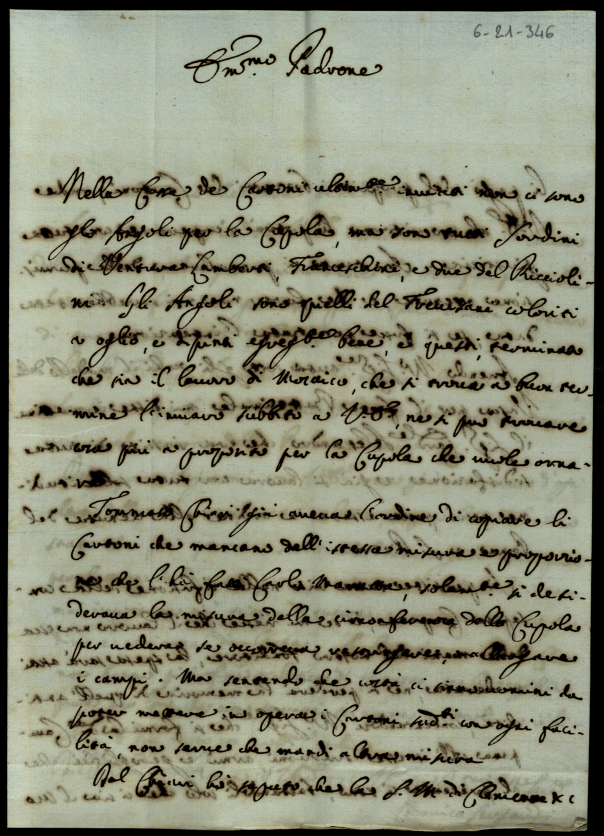 6-21-346
Em.mo Padrone
Nella Cassa de Cartoni ultim.te inviata non ci sono
gli Angoli per la Cupola, ma sono tutti Tordini
di Ventura Lamberti, Franceschini, e due del Riccioli-
ni. Gli Angoli sono quelli del Trevisani coloriti
a oglio, e dipinti egreg.te bene, e questi, terminato
che sia il lavoro di Mosaico, che si trova a buon ter-
mine l'inviarò subbito a V.E., ne si può trovare
cosa più a proposito per la Cupola che vuole orna-
Tommaso Chiari già aveva l'ordine di copiare li
Cartoni che mancano dell'istessa misura e proporzio-
ne che li fece Carlo Maratta, solam.te si desi-
derava la misura della circonferenza della Cupola
per vedere se occorreva restringere, o allargare
i campi. Ma sentendo che costì ci sono uomini da
poter mettere in opera i Cartoni sud.ti con ogni faci-
lità, non serve che mandi altra misura.
Dal Chiari hò saputo che la S. M. di Clemente XI